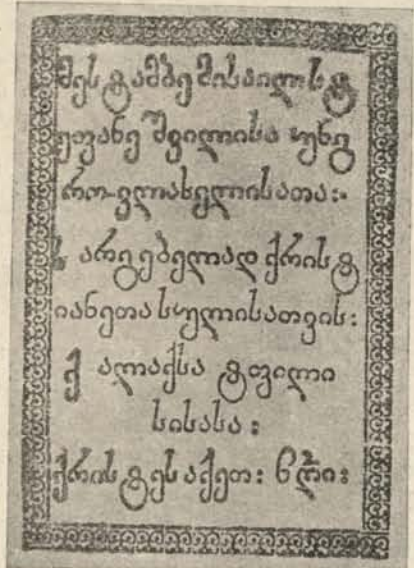 მესტამბე მიხაილ სტ
ეფანე შვილისა უნგ
რო-ვლახელისათა:·
ს არგებელად ქრისტ
იანეთა სულისათვის:
ქ ალაქსა ტფილი
სისასა :
ქრისტეს აქეთ: ჩღი: